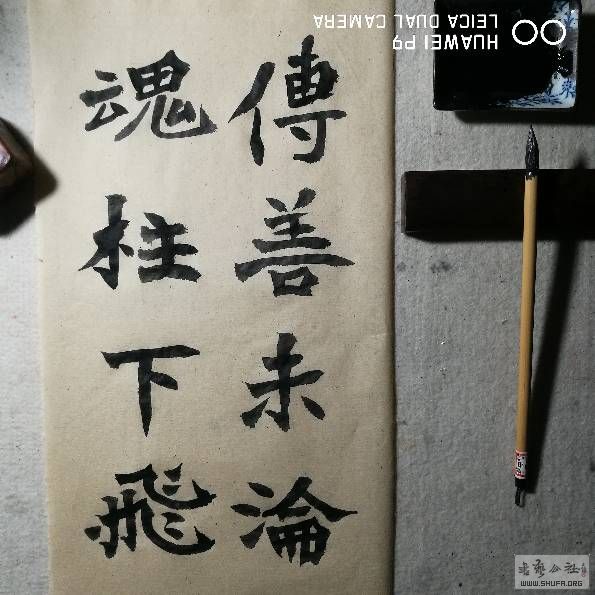 傳善未淪
魂柱下飛
HUAWEI P9
LEICA DUAL CAMERA
WWW.SHUFA.ORG